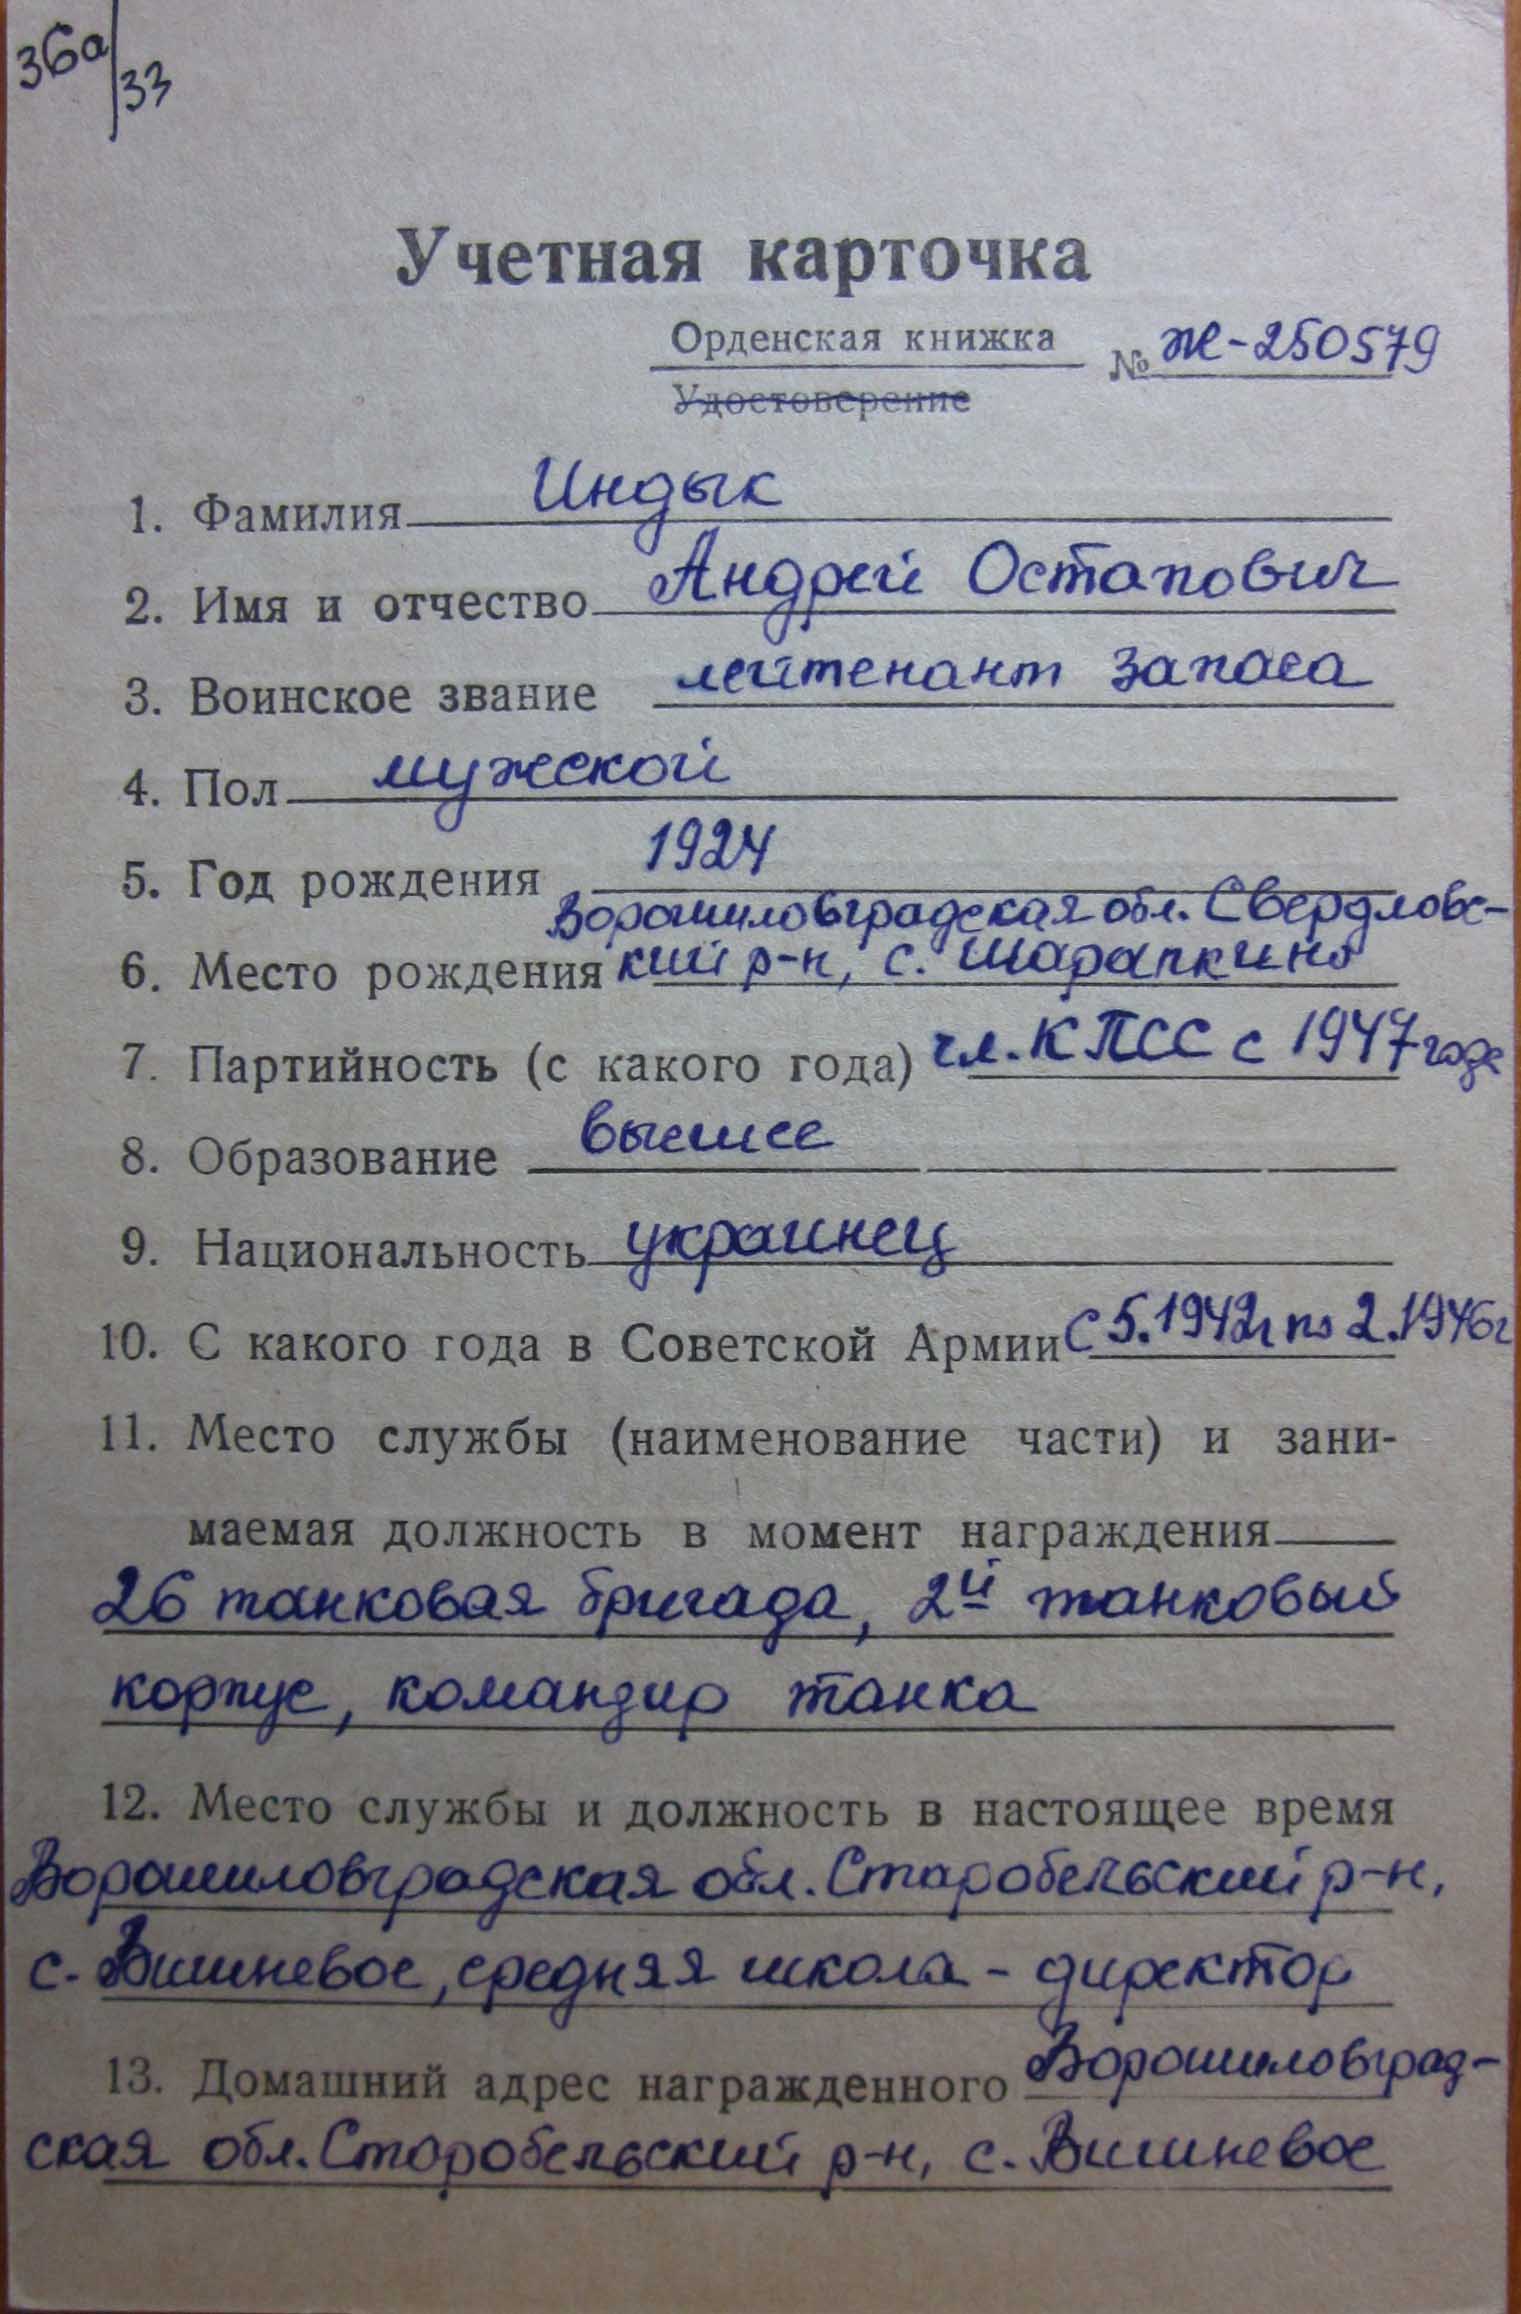 36а/33
Учетная карточка
Орденская книжка № Ж-250579
Удостоверение
1. Фамилия Индык
2. Имя и отчество Андрей Остапович
3. Воинское звание лейтенант запаса
4. Пол мужской
5. Год рождения 1924
Ворошиловградская обл. Свердловс-
6. Место рождения кий р-н, с. Шарапкино
7. Партийность (с какого года) чл. КПСС с 1947 года
8. Образование высшее
9. Национальность украинец
10. С какого года в Советской Армии С 5.1942г по 2.1946г
11. Место службы (наименование части) и зани-
маемая должность в момент награждения
26 танковая бригада, 2й танковый
корпус, командир танка
12. Место службы и должность в настоящее время
Ворошиловградская обл. Старобельский р-н,
с. Вишневое, средняя школа - директор
13. Домашний адрес награжденного Ворошиловград-
ская обл. Старобельский р-н, с. Вишневое